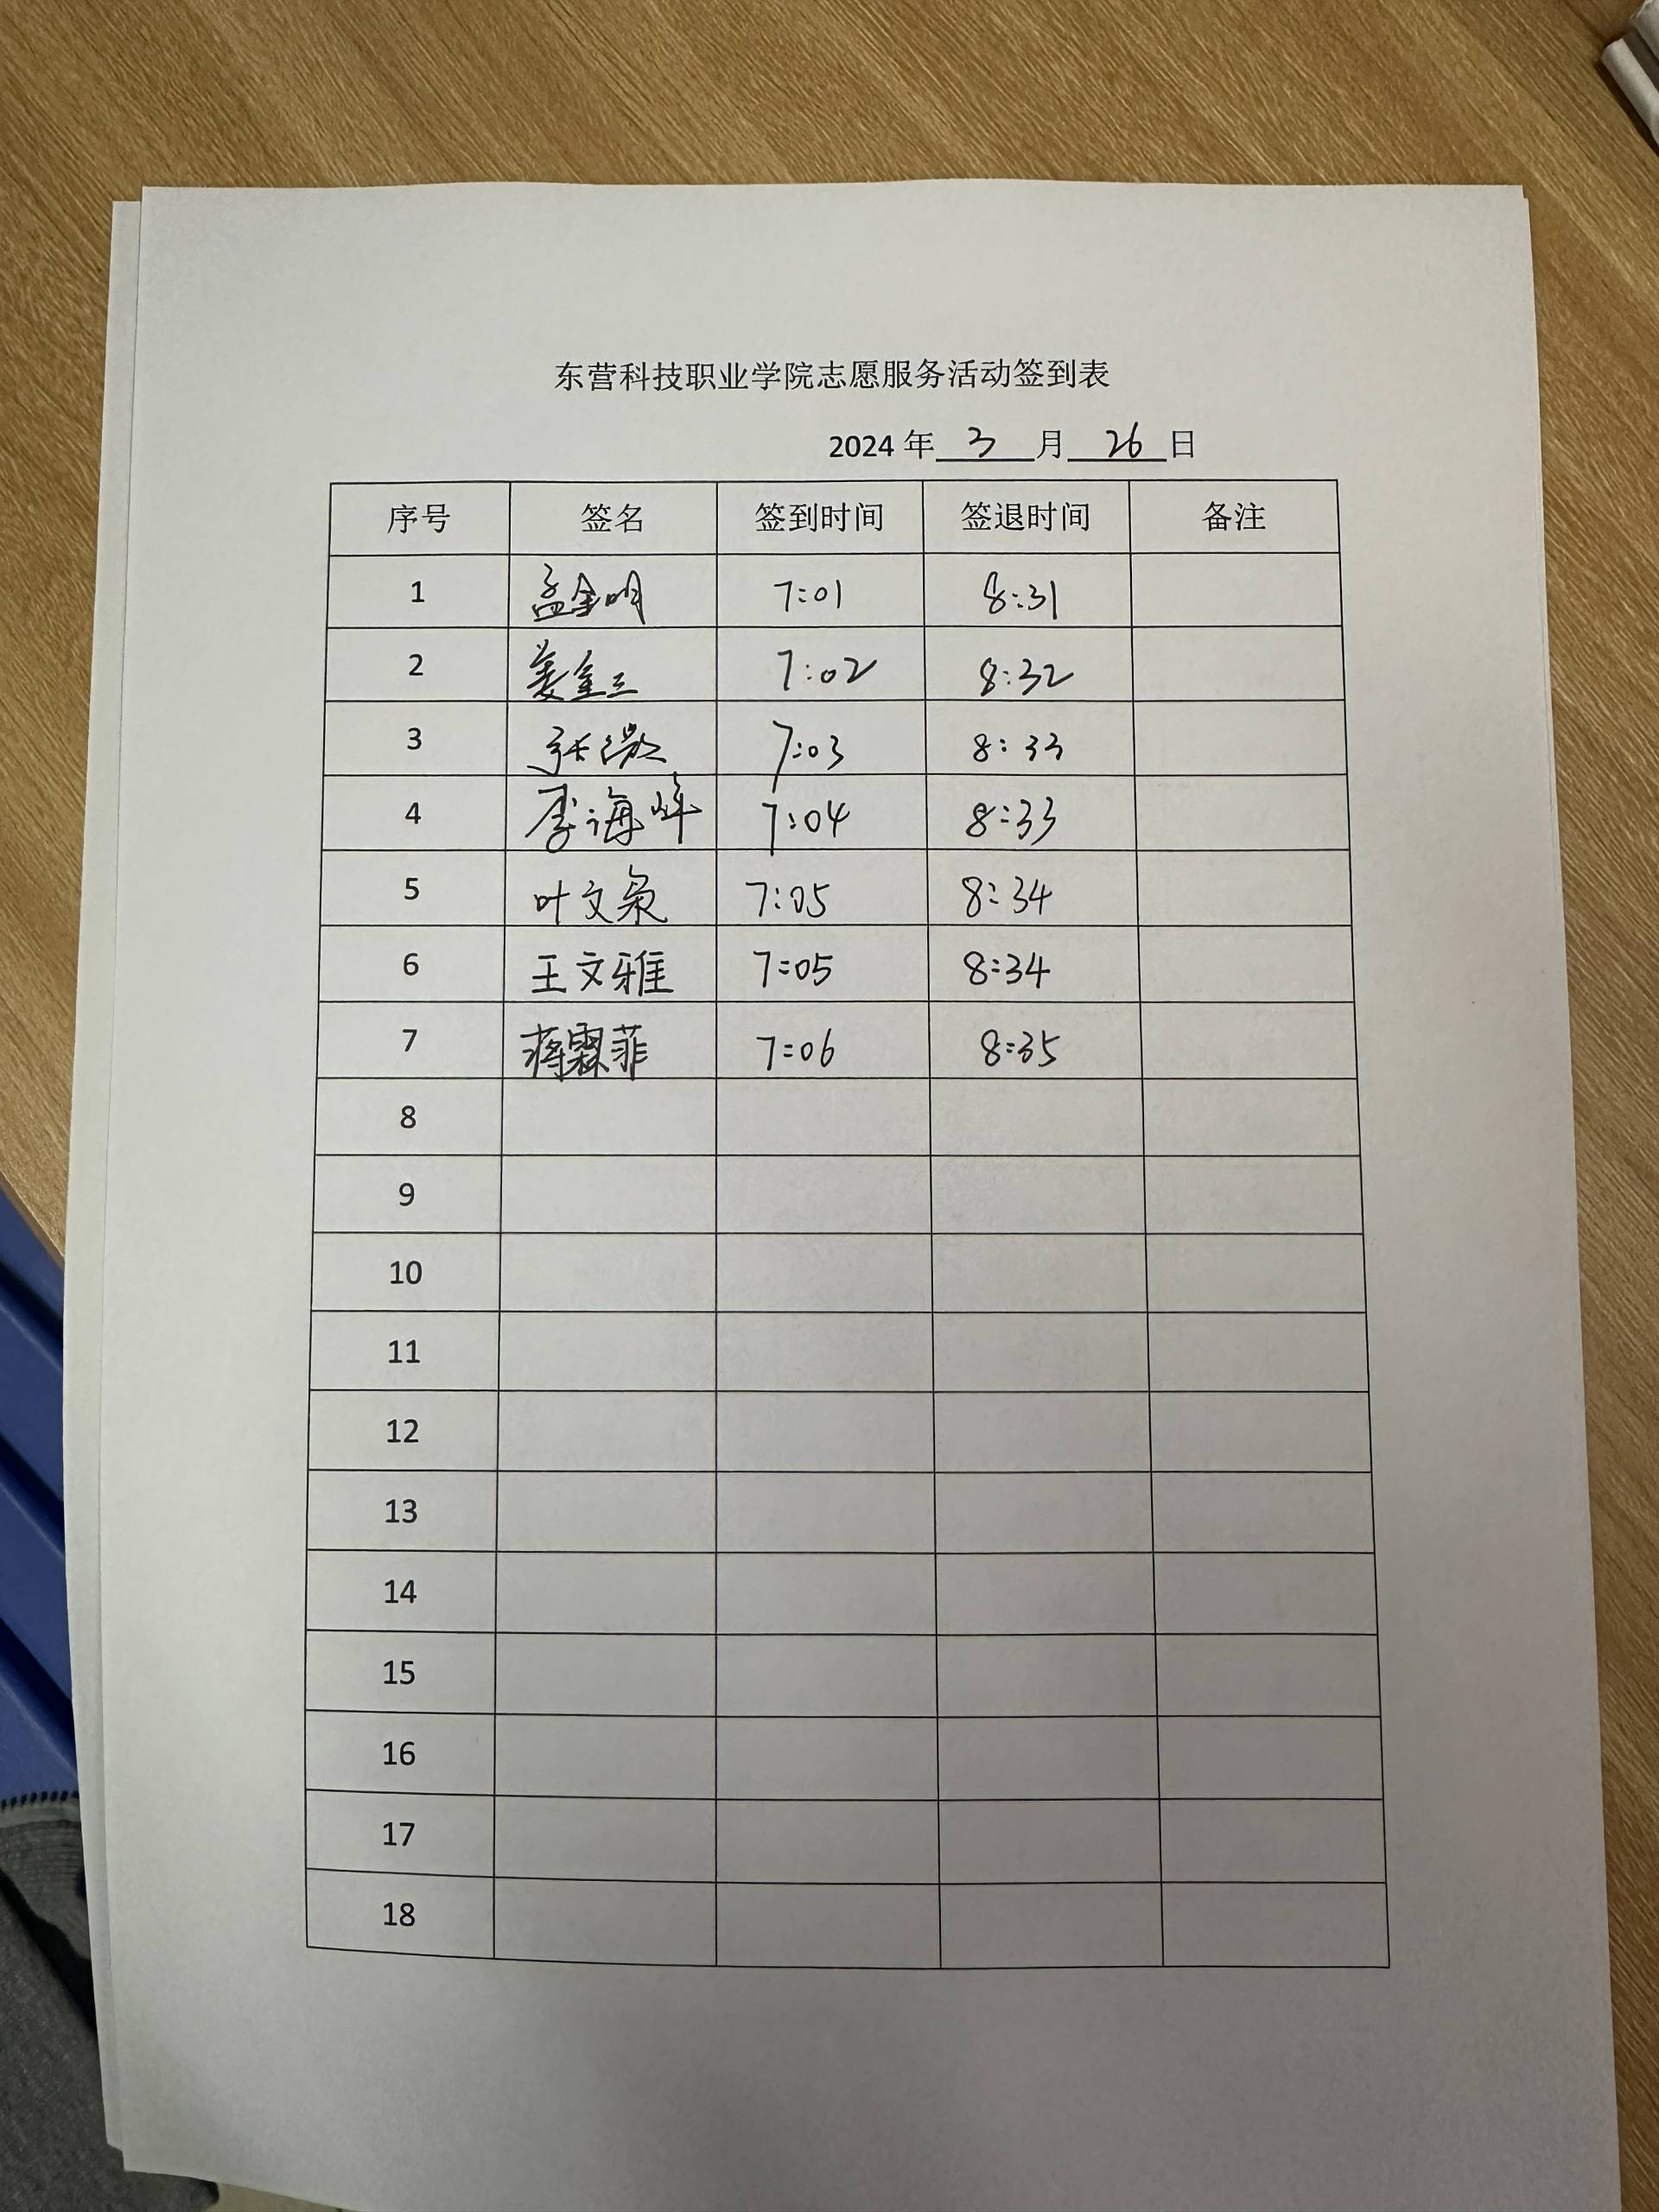 东营科技职业学院志愿服务活动签到表
2024 年 3 月 26 日
序号 签名 签到时间 签退时间 备注
1 孟金明 7:01 8:31
2 姜金三 7:02 8:32
3 张 7:03 8:33
4 李海峰 7:04 8:33
5 叶文枭 7:05 8:34
6 王文雅 7:05 8:34
7 蒋霖菲 7:06 8:35
8
9
10
11
12
13
14
15
16
17
18